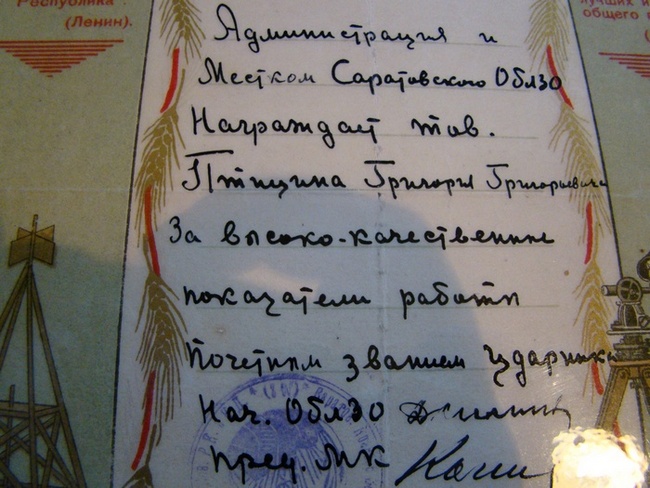 Республика
(Ленин).
лучших и
общего
Администрация и
Местком Саратовского Облзо
Награждает тов.
Птицына Григория Григорьевича
За высоко-качественные
показатели работы
Почетным званием Ударника
Нач. ОБЛЗО
Пред. МК